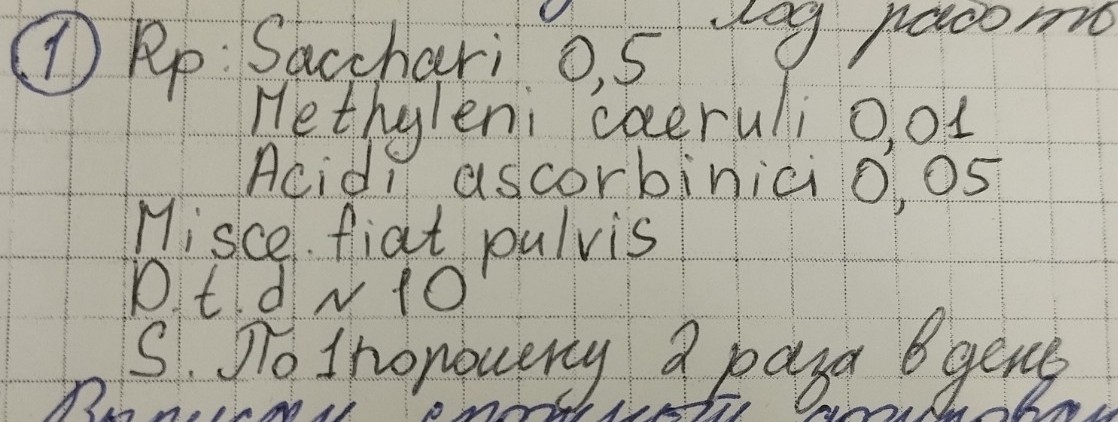 Ход работы
1 Rp: Sacchari 0,5
Methyleni caeruli 0,01
Acidi ascorbinici 0,05
Misce. fiat pulvis
D.t.d N 10
S. По 1 порошку 2 раза в день